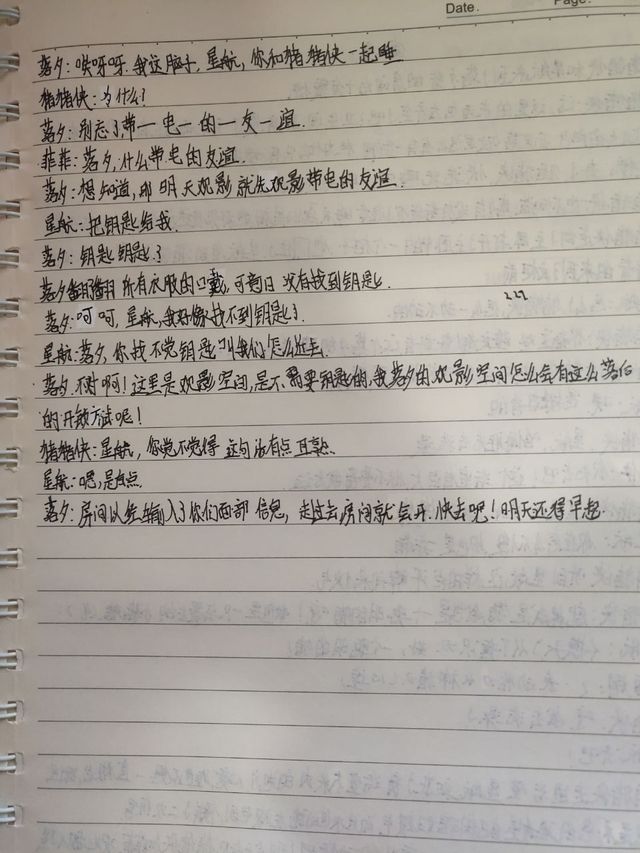 Date.
Page:
落夕:哎呀呀.我这脑子,星航,你和猪猪侠一起睡
猪猪侠:为什么?
落夕:别忘了带一电一的一友一谊.
菲菲:落夕,什么带电的友谊.
落夕:想知道,那明天观影就先观影带电的友谊.
星航:把钥匙给我.
落夕:钥匙钥匙?
落夕翻翻所有衣服的口袋,可意日没有找到钥匙.
落夕:呵呵,星航,我好像找不到钥匙了.
星航:落夕,你找不完钥匙叫我们怎么近去.
落夕:不对啊!这里是观影空间,是不需要钥匙的,我落夕的观影空间怎么会有这么落后
的开锁方法呢!
猪猪侠:星航,你觉不觉得这句话有点耳熟.
星航:嗯,是有点.
落夕:房间以经输入了你们面部信息,走过去房间就会开.快去吧!明天还得早起.